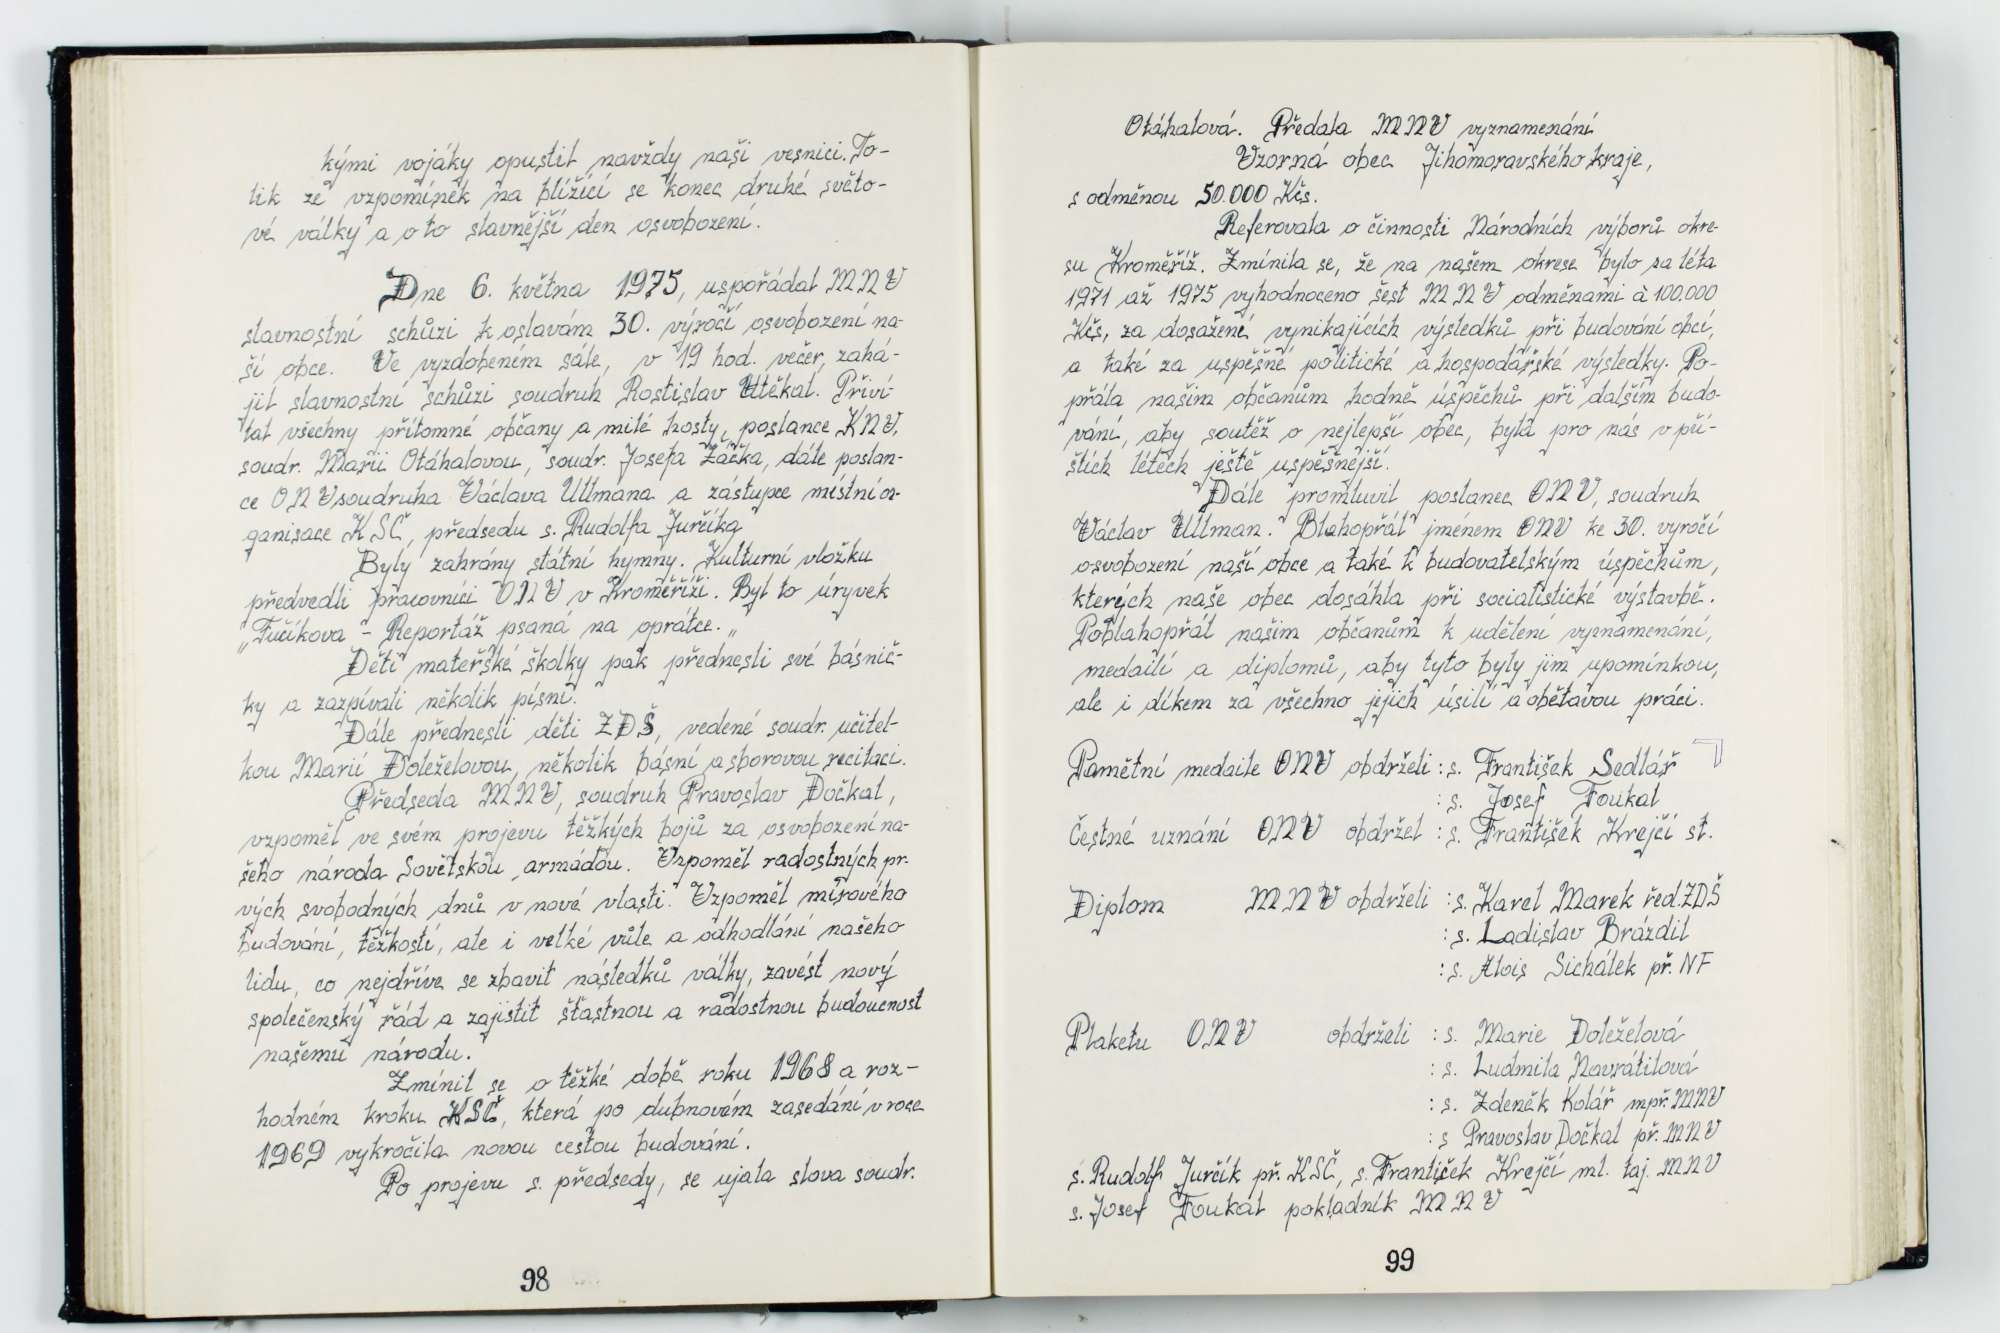 kými vojáky opustil navždy naši vesnici. To-
lik ze vzpomínek na blížící se konec druhé světo-
vé války a o to slavnější den osvobození.
Dne 6. května 1975, uspořádal MNV
slavnostní schůzi k oslavám 30. výročí osvobození na-
ší obce. Ve vyzdobeném sále, v 19 hod. večer, zahá-
jil slavnostní schůzi soudruh Rostislav Utěkal. Přiví-
tal všechny přítomné občany a milé hosty, poslance KNV,
soudr. Marii Otáhalovou, soudr. Josefa Žáčka, dále poslan-
ce ONV soudruha Václava Ullmana a zástupce místní or-
ganisace KSČ, předsedu s. Rudolfa Jurčíka
Byly zahrány státní hymny. Kulturní vložku
předvedli pracovníci ONV v Kroměříži. Byl to úryvek
„Fučíkova - Reportáž psaná na oprátce.„
Děti mateřské školky pak přednesli své básnič-
ky a zazpívali několik písní.
Dále přednesli děti ZDŠ, vedené soudr. učitel-
kou Marií Doleželovou, několik básní a sborovou recitaci.
Předseda MNV, soudruh Pravoslav Dočkal,
vzpoměl ve svém projevu těžkých bojů za osvobození na-
šeho národa Sovětskou armádou. Vzpoměl radostných pr-
vých svobodných dnů v nové vlasti. Vzpoměl mírového
budování, těžkostí, ale i velké vůle a odhodlání našeho
lidu, co nejdříve se zbavit následků války, zavést nový
společenský řád a zajistit šťastnou a radostnou budoucnost
našemu národu.
Zmínil se o těžké době roku 1968 a roz-
hodném kroku KSČ, která po dubnovém zasedání v roce
1969 vykročila novou cestou budování.
Po projevu s. předsedy, se ujala slova soudr.
98
Otáhalová. Předala MNV vyznamenání
Vzorná obec Jihomoravského kraje,
s odměnou 50.000 Kčs.
Referovala o činnosti Národních výborů okre-
su Kroměříž. Zmínila se, že na našem okrese bylo za léta
1971 až 1975 vyhodnoceno šest MNV odměnami à 100.000
Kčs, za dosažené vynikajících výsledků při budování obcí,
a také za uspěšné politické a hospodářské výsledky. Po-
přála našim občanům hodně úspěchů při dalším budo-
vání, aby soutěž o nejlepší obec, byla pro nás v pří-
štích létech ještě uspěšnější.
Dále promluvil poslanec ONV, soudruh
Václav Ullman. Blahopřál jménem ONV ke 30. vyročí
osvobození naší obce a také k budovatelským úspěchům,
kterých naše obec dosáhla při socialistické výstavbě.
Poblahopřál našim občanům k udělení vyznamenání,
medailí a diplomů, aby tyto byly jim upomínkou,
ale i díkem za všechno jejich úsilí a obětavou práci.
Pamětní medaile ONV obdrželi : s. František Sedlář
: s. Josef Foukal
Čestné uznání ONV obdržel : s. František Krejčí st.
Diplom MNV obdrželi : s. Karel Marek řed. ZDŠ
: s. Ladislav Brázdil
: s. Alois Sichálek př. NF
Plaketu ONV obdrželi : s. Marie Doleželová
: s. Ludmila Navrátilová
: s. Zdeněk Kolář mpř. MNV
: s Pravoslav Dočkal př. MNV
s. Rudolf Jurčík př. KSČ, s. František Krejčí ml. taj. MNV
s. Josef Foukal pokladník MNV
99